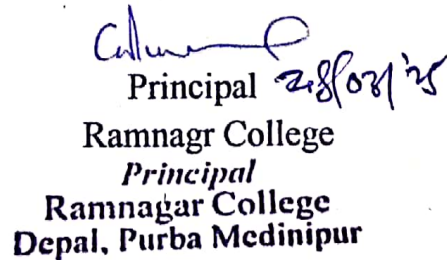 Principal
Ramnagr College
Principal
Ramnagar College
Depal, Purba Medinipur